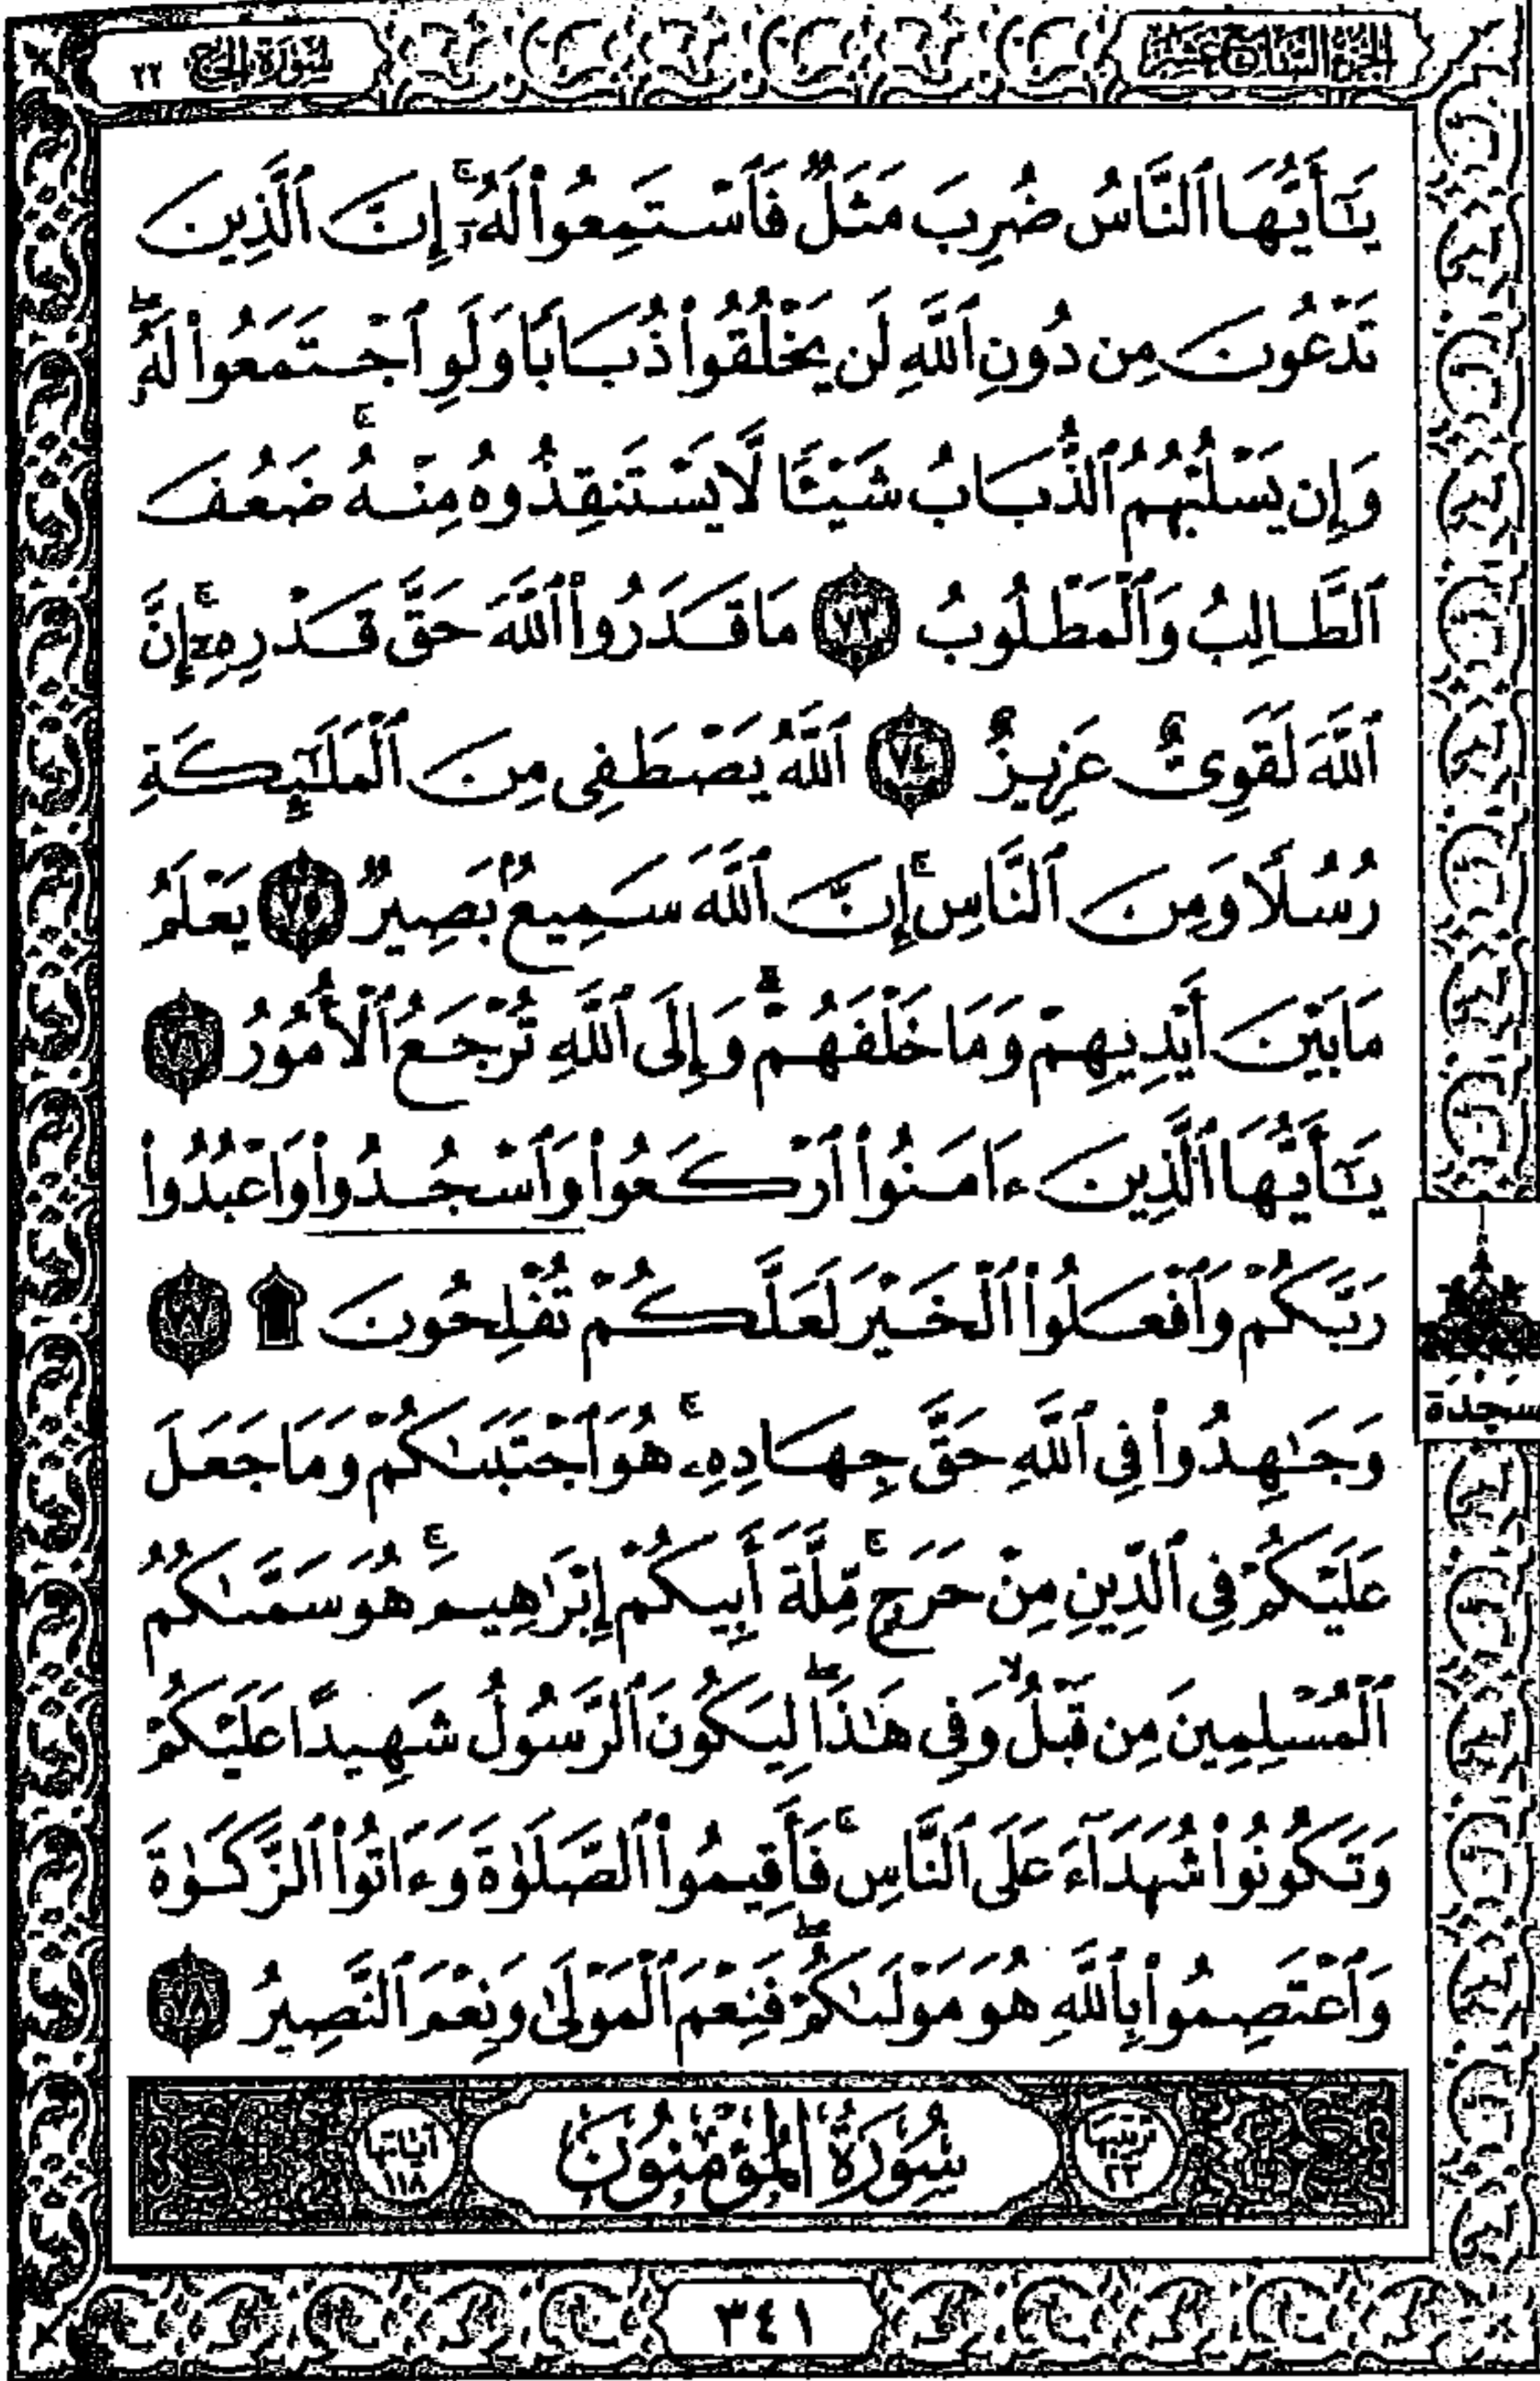 الجزء السابع عشر
سورة الحج ٢٢
يَـٰٓأَيُّهَا ٱلنَّاسُ ضُرِبَ مَثَلٌ فَٱسْتَمِعُوا۟ لَهُۥٓ ۚ إِنَّ ٱلَّذِينَ
تَدْعُونَ مِن دُونِ ٱللَّهِ لَن يَخْلُقُوا۟ ذُبَابًا وَلَوِ ٱجْتَمَعُوا۟ لَهُۥ ۖ
وَإِن يَسْلُبْهُمُ ٱلذُّبَابُ شَيْـًٔا لَّا يَسْتَنقِذُوهُ مِنْهُ ۚ ضَعُفَ
ٱلطَّالِبُ وَٱلْمَطْلُوبُ ٧٣ مَا قَدَرُوا۟ ٱللَّهَ حَقَّ قَدْرِهِۦٓ ۚ إِنَّ
ٱللَّهَ لَقَوِىٌّ عَزِيزٌ ٧٤ ٱللَّهُ يَصْطَفِى مِنَ ٱلْمَلَـٰٓئِكَةِ
رُسُلًا وَمِنَ ٱلنَّاسِ ۚ إِنَّ ٱللَّهَ سَمِيعٌۢ بَصِيرٌ ٧٥ يَعْلَمُ
مَا بَيْنَ أَيْدِيهِمْ وَمَا خَلْفَهُمْ ۗ وَإِلَى ٱللَّهِ تُرْجَعُ ٱلْأُمُورُ ٧٦
يَـٰٓأَيُّهَا ٱلَّذِينَ ءَامَنُوا۟ ٱرْكَعُوا۟ وَٱسْجُدُوا۟ وَٱعْبُدُوا۟
رَبَّكُمْ وَٱفْعَلُوا۟ ٱلْخَيْرَ لَعَلَّكُمْ تُفْلِحُونَ ۩ ٧٧
سَجْدَة
وَجَـٰهِدُوا۟ فِى ٱللَّهِ حَقَّ جِهَادِهِۦ ۚ هُوَ ٱجْتَبَىٰكُمْ وَمَا جَعَلَ
عَلَيْكُمْ فِى ٱلدِّينِ مِنْ حَرَجٍ ۚ مِّلَّةَ أَبِيكُمْ إِبْرَٰهِيمَ ۚ هُوَ سَمَّىٰكُمُ
ٱلْمُسْلِمِينَ مِن قَبْلُ وَفِى هَـٰذَا ۖ لِيَكُونَ ٱلرَّسُولُ شَهِيدًا عَلَيْكُمْ
وَتَكُونُوا۟ شُهَدَآءَ عَلَى ٱلنَّاسِ ۚ فَأَقِيمُوا۟ ٱلصَّلَوٰةَ وَءَاتُوا۟ ٱلزَّكَوٰةَ
وَٱعْتَصِمُوا۟ بِٱللَّهِ هُوَ مَوْلَىٰكُمْ ۖ فَنِعْمَ ٱلْمَوْلَىٰ وَنِعْمَ ٱلنَّصِيرُ ٧٨
ترتيبها ٢٣ سُورَةُ المُؤْمِنُونَ آياتها ١١٨
٣٤١